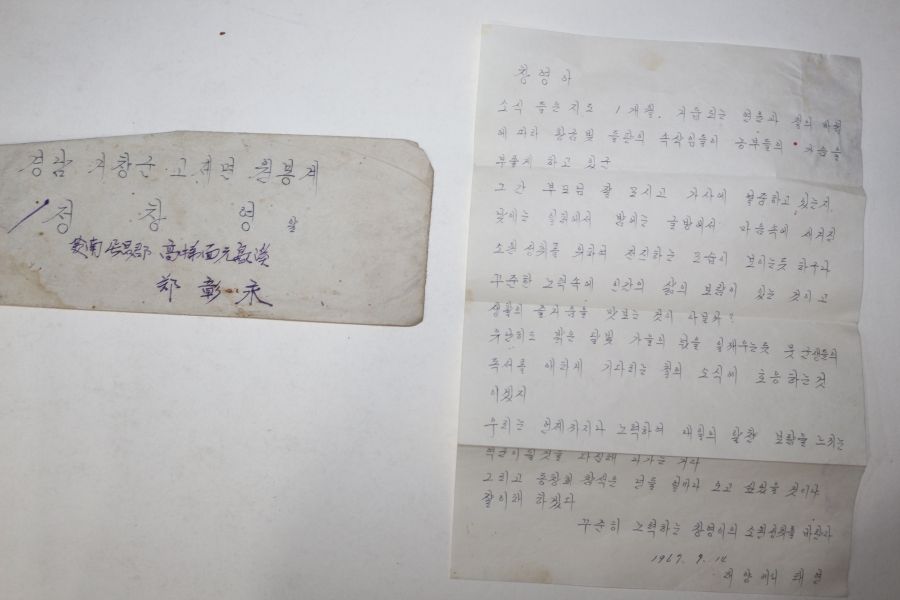 경남 거창군 고제면 원봉계
정 창 영 앞
郡 高梯面元
鄭 彰 永
창영아
소식 들은지도 1개월. 거듭되는 연륜과 철의 바뀜
에 따라 황금빛 들판의 속삭임들이 농부들의 가슴을
부풀게 하고 있군
그간 부모님 잘 모시고 가사에 열중하고 있는지.
낮에는 일터에서 밤에는 글방에서 마음속에 새겨진
소원성취를 위하여 전진하는 모습이 보이는듯 하구나
꾸준한 노력속에 인간의 삶의 보람이 있는 것이고
생활의 즐거움을 맛보는 것이 아닐까?
유난히도 밝은 달빛 가을의 밤을 일깨우는듯 뭇 군생들의
독서를 애타게 기다리는 철의 소식에 호응하는것
이겠지
우리는 언제까지나 노력하며 내일의 알찬 보람을 느끼는
그리고 동창회 참석은 얼마나 오고 싶었을 것이냐
꾸준히 노력하는 창영이의 소원성취를 바란다
1967. 9. 14